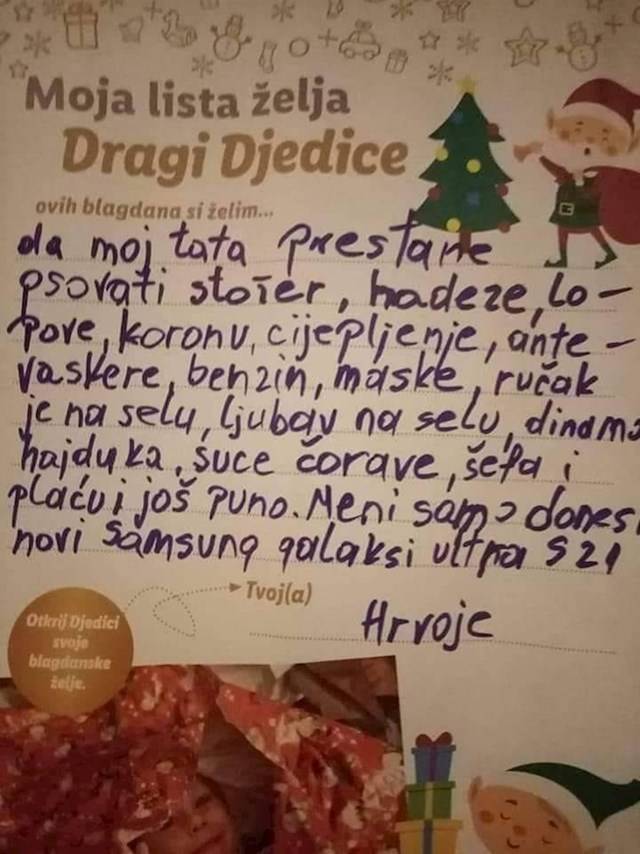 Moja lista želja
Dragi Djedice
ovih blagdana si želim...
da moj tata prestane
psovati stožer, hadeze, lo-
pove, koronu, cijepljenje, ante-
vaskere, benzin, maske, ručak
je na selu, ljubav na selu, dinamo
hajduka, suce ćorave, šefa i
plaću i još puno. Meni samo donesi
novi samsung galaksi ultra S21
Tvoj(a)
Hrvoje
Otkrij Djedici
svoje
blagdanske
želje.